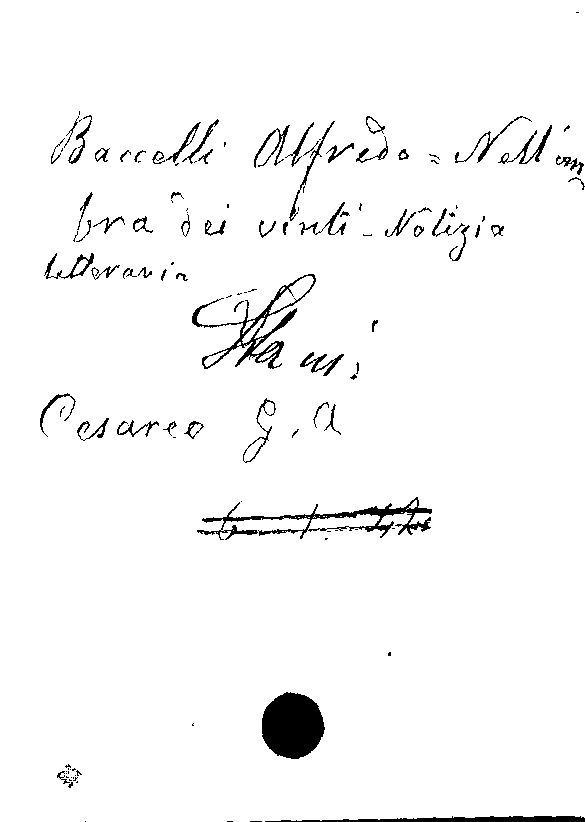 Baccelli Alfredo = Nell'om
bra dei vinti - Notizia
letteraria
Cesareo G. A